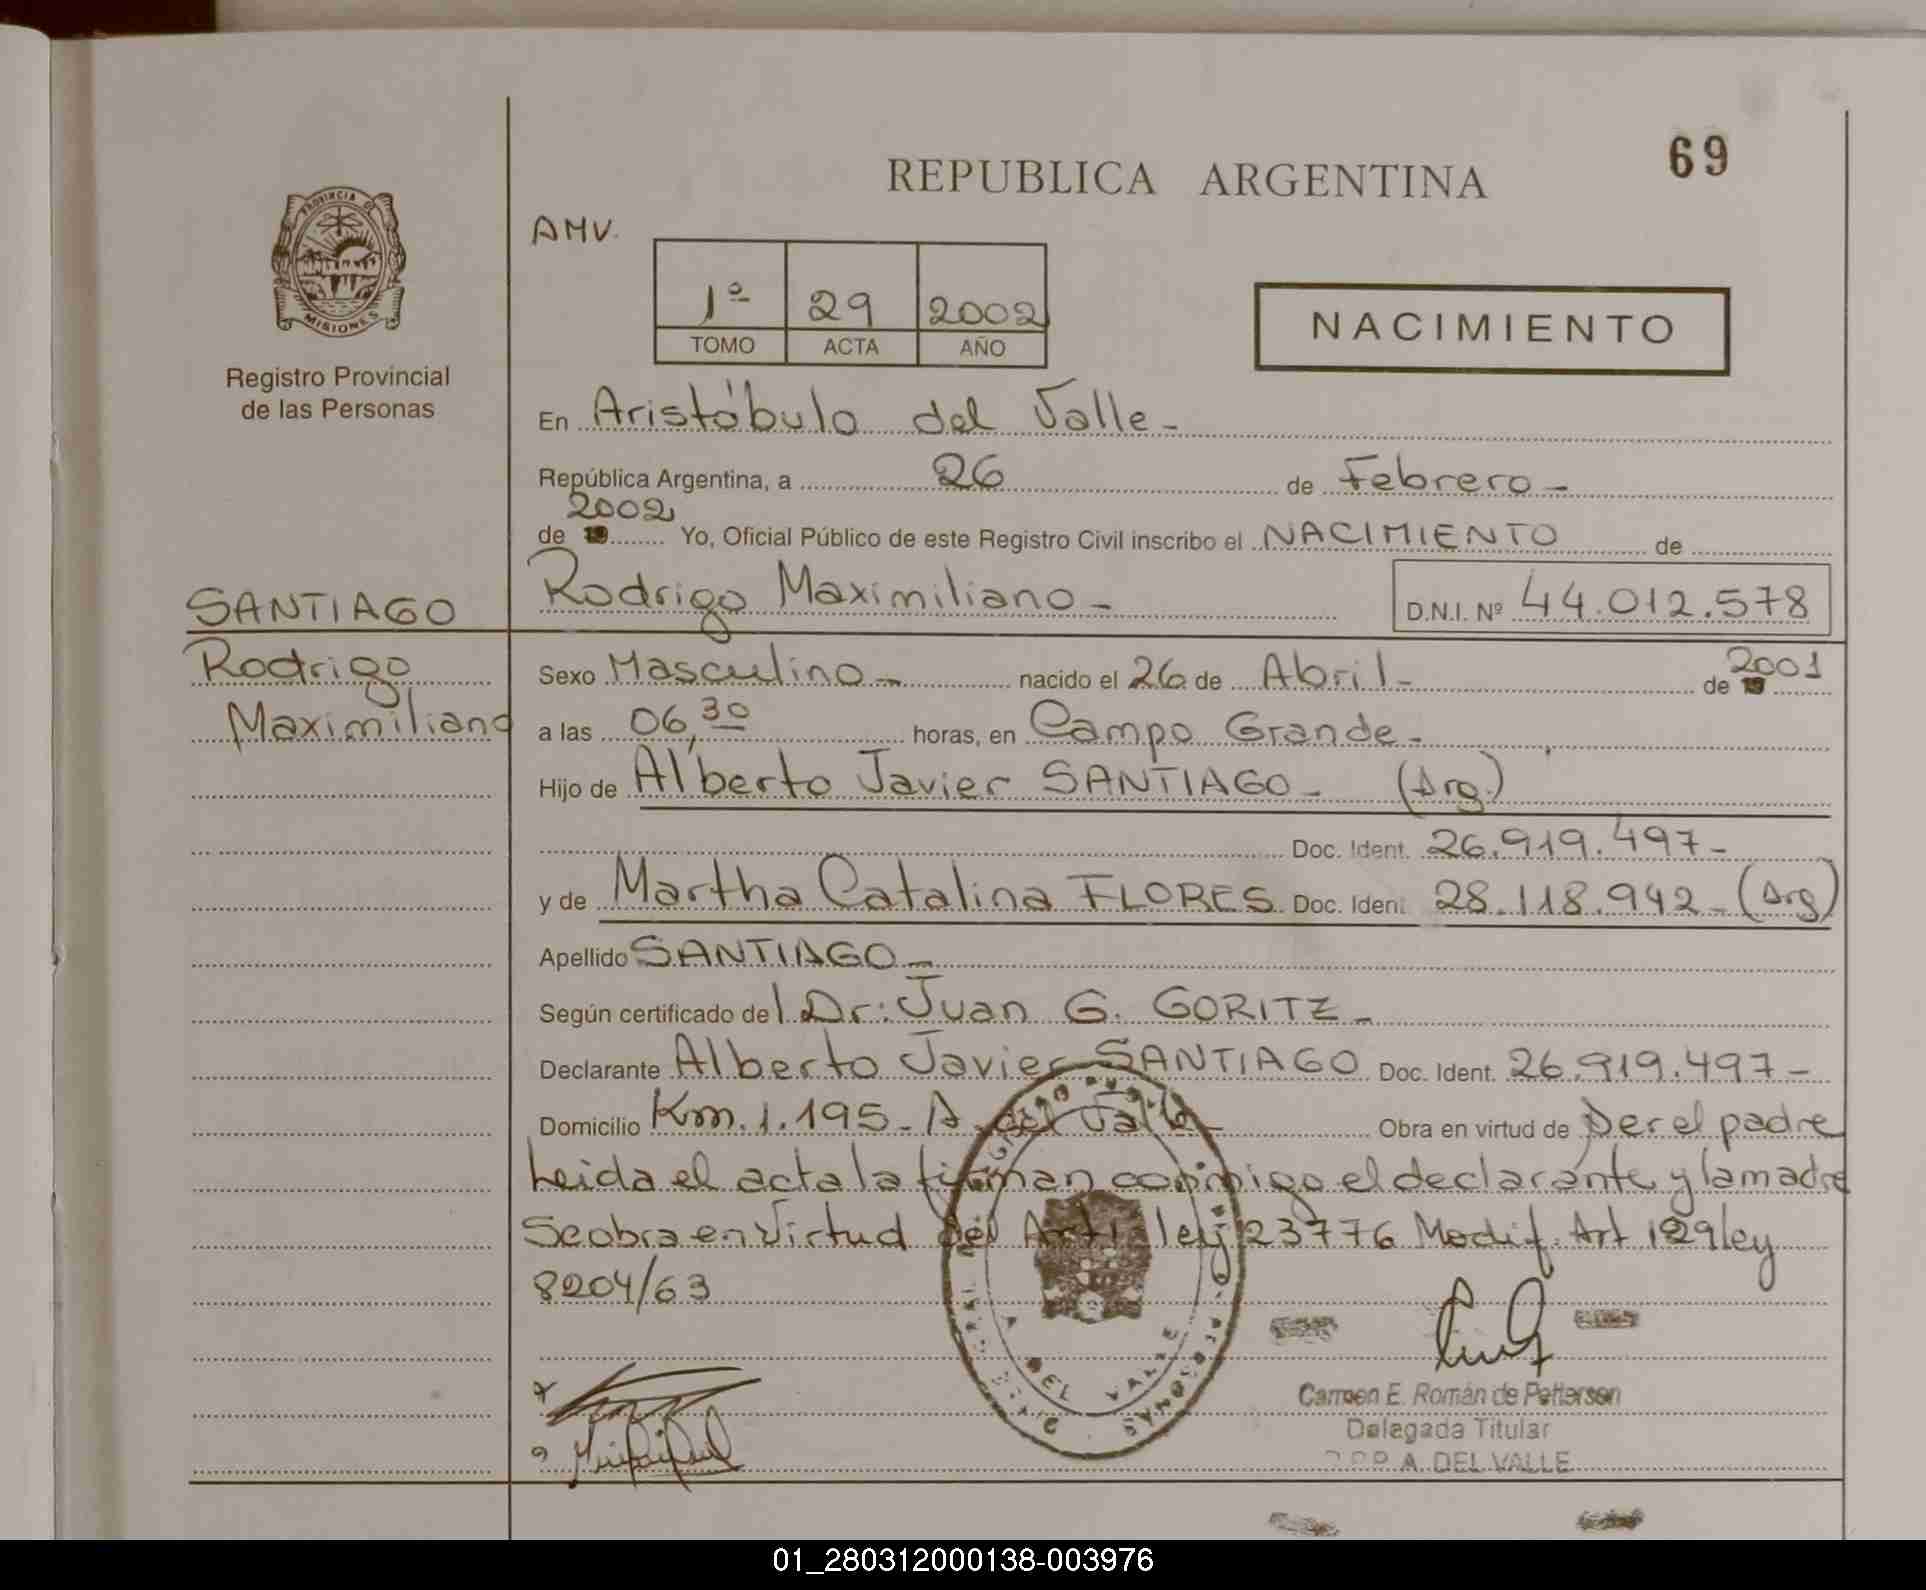 69
REPUBLICA ARGENTINA
PROVINCIA DE
MISIONES
Registro Provincial
de las Personas
AMV.
1º 29 2002
TOMO ACTA AÑO
NACIMIENTO
En Aristóbulo del Valle -
República Argentina, a 26 de Febrero -
2002
de 19 Yo, Oficial Público de este Registro Civil inscribo el NACIMIENTO de
SANTIAGO
Rodrigo Maximiliano - D.N.I. Nº 44.012.578
Rodrigo
Maximiliano
Sexo Masculino - nacido el 26 de Abril - de 19 2001
a las 06,30 horas, en Campo Grande -
Hijo de Alberto Javier SANTIAGO - (Arg.)
Doc. Ident. 26.919.497 -
y de Martha Catalina FLORES Doc. Ident. 28.118.942 - (Arg)
Apellido SANTIAGO -
Según certificado del Dr: Juan G. GORITZ -
Declarante Alberto Javier SANTIAGO Doc. Ident. 26.919.497 -
Domicilio Km. 1.195 - A. del Valle - Obra en virtud de Ser el padre
Leida el acta la firman conmigo el declarante y la madre
Se obra en Virtud del Art 1 ley 23776 Modif. Art 129 ley
8204/63
A DEL VALLE
Carmen E. Román de Petterson
Delegada Titular
A. DEL VALLE
01_280312000138-003976